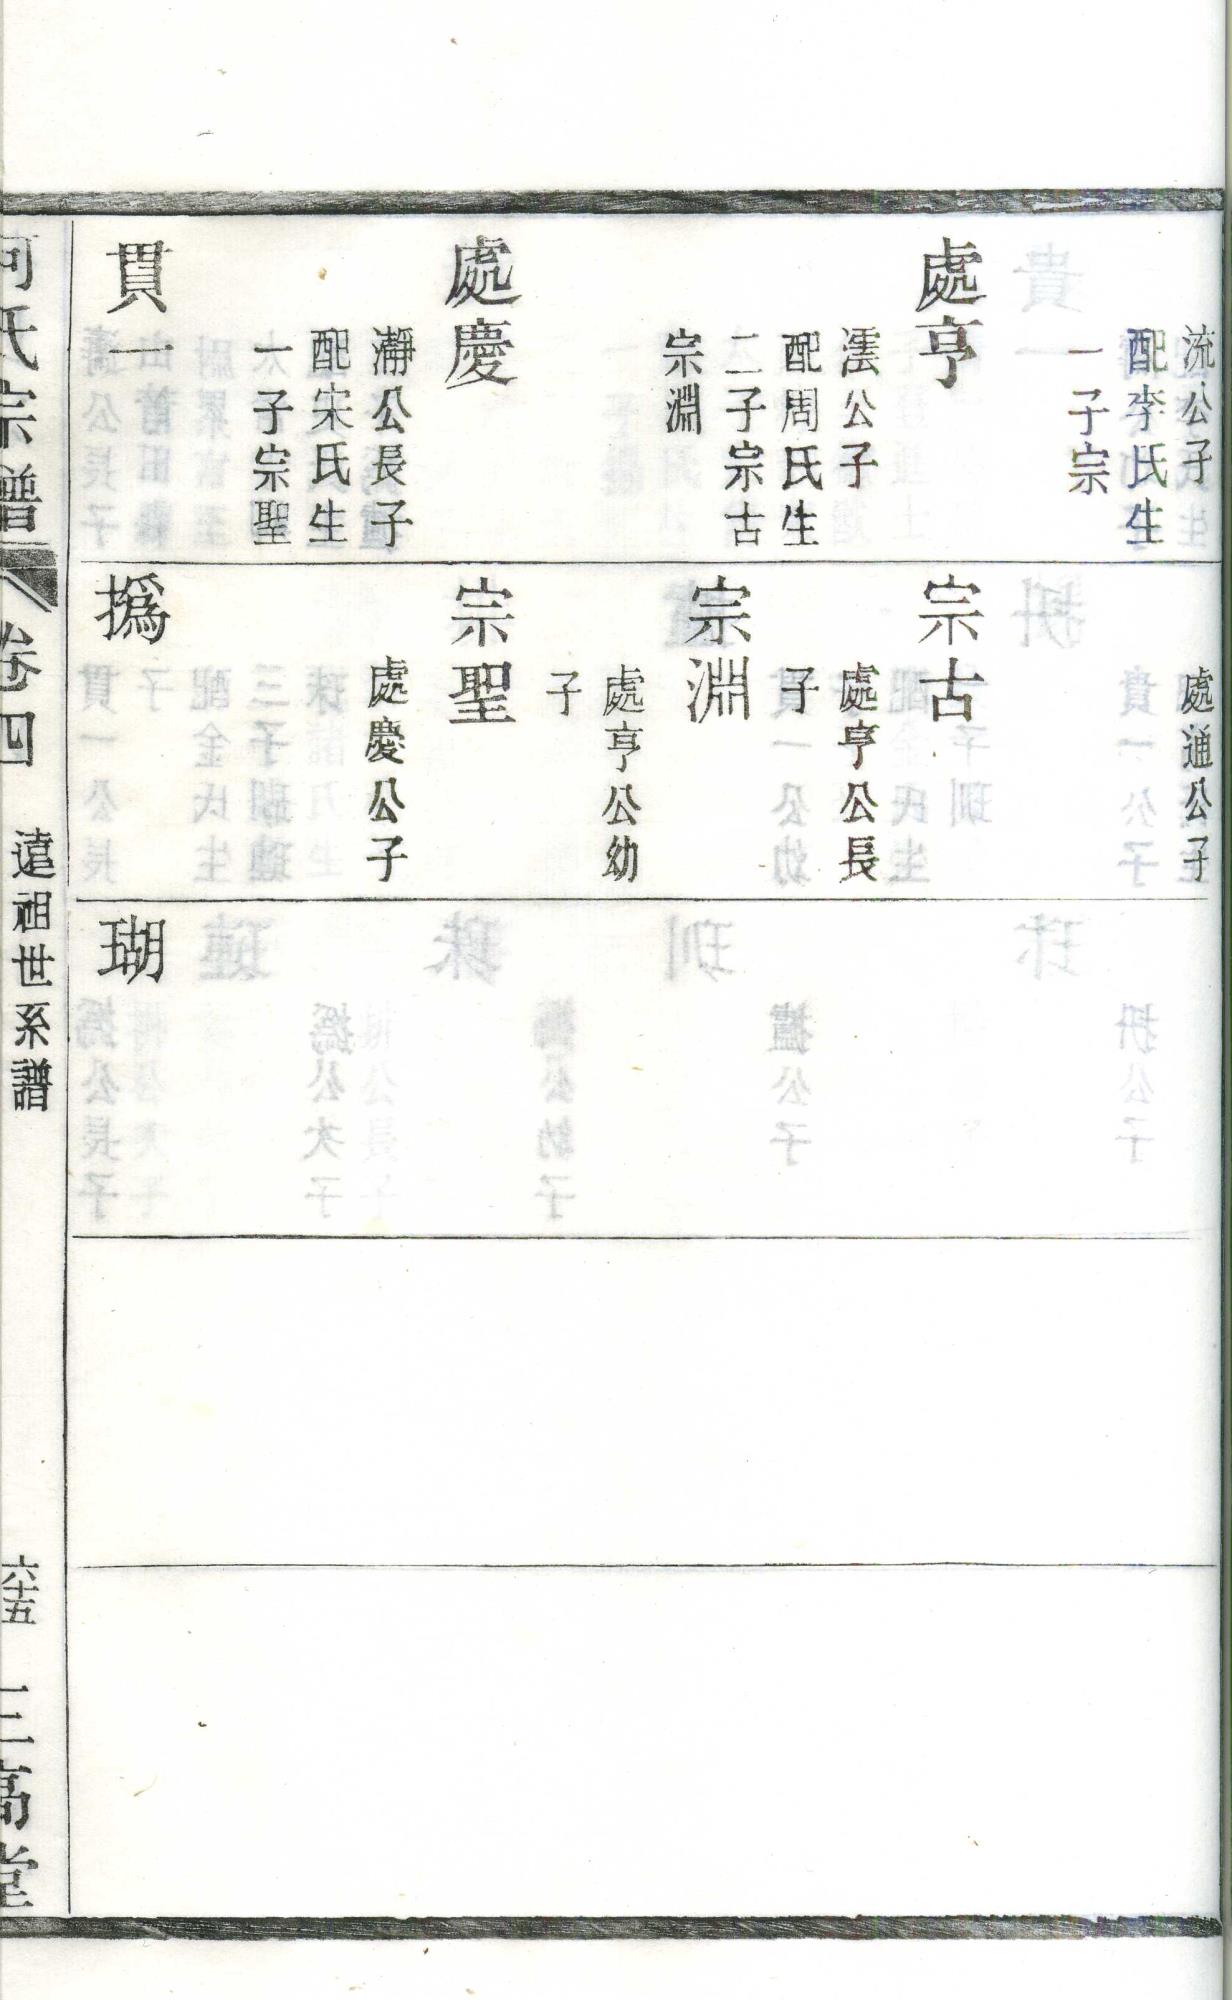 流公子
配李氏生
一子宗
處亨
澐公子
配周氏生
二子宗古
宗淵
處慶
瀞公長子
配宋氏生
一子宗聖
貫一
處通公子
宗古
處亨公長
子
宗淵
處亨公幼
子
宗聖
處慶公子
撝
瑚
何氏宗譜
卷四
遠祖世系譜
六十五
三高堂